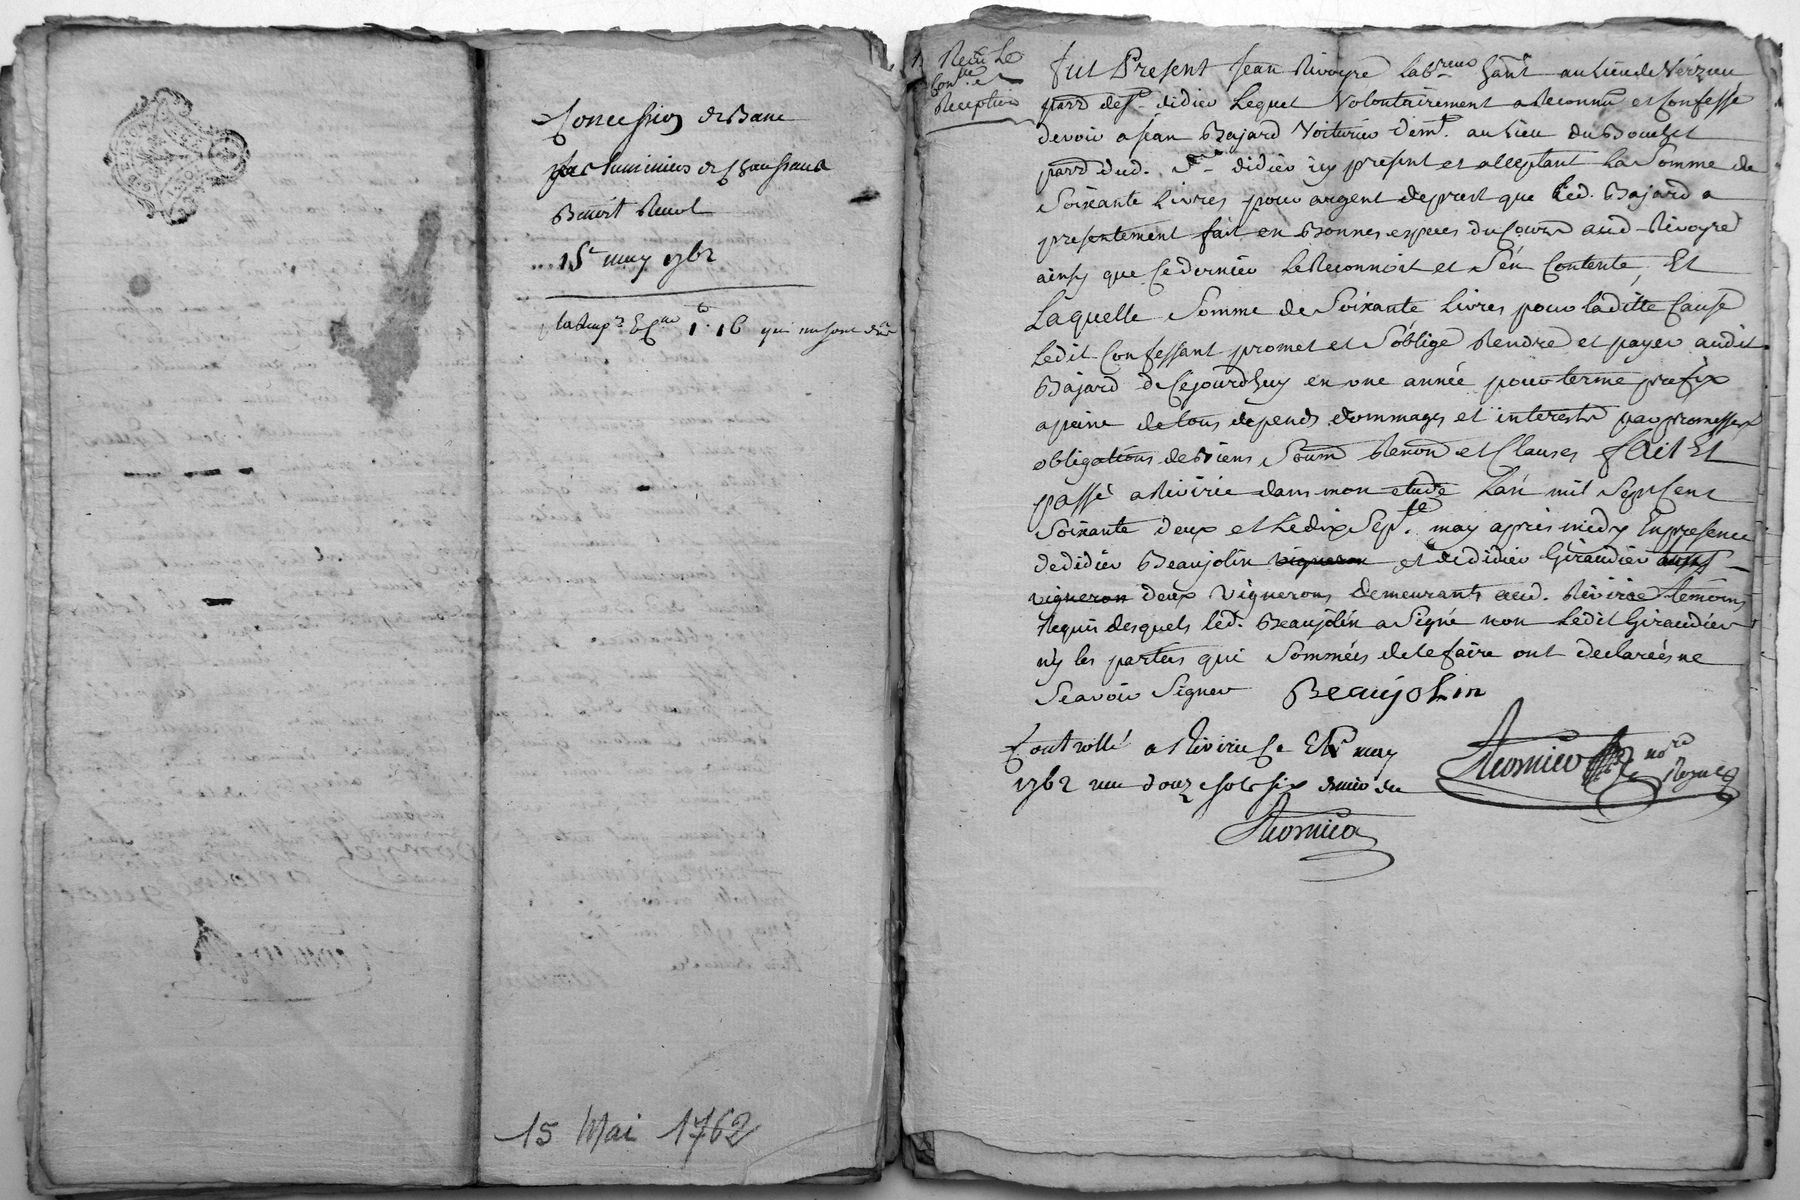 Concession de Banc
par luminiers de Chaussans
Benoit Revol
15e may 1762
qui me sont deu
15 Mai 1762
Reçu le
Reception
fut Present Jean Rivoyre labreur hant au lieu de Verzieu
parr de st didier Lequel Volontairement a Reconnu et Confessé
devoir a jean Bajard Voiturier demt. au lieu du Bouchet
parr dud. st didier icy present et acceptant La Somme de
Soixante Livres pour argent de prest que led. Bajard a
presentement fait en Bonnes especes du Cours aud Rivoyre
ainsy que Ce dernier Le Reconnoit et S'en Contente, Et
Laquelle Somme de Soixante Livres pour laditte Cause
Ledit Confessant promet et S'oblige Rendre et payer audit
Bajard de Cejourdhuy en une année pour terme prefix
a peine de tous depends dommages et interests par promesses
obligations de Biens Soum Renon et Clauses fait Et
passé a Riviric dans mon etude L'an mil Sept Cent
Soixante deux et Le dix Sept. may apres midy En presence
de didier Beaujolin vigneron et de didier Giraudier aussy
vigneron deux Vignerons demeurants aud. Riviric temoins
Requis desquels led. Beaujolin a Signé non Ledit Giraudier
n'y les parties qui Sommées de le faire ont declarées ne
Scavoir Signer Beaujolin
Controllé a Riviric le may
1762 reçu douze sols six denier
nore
Royal